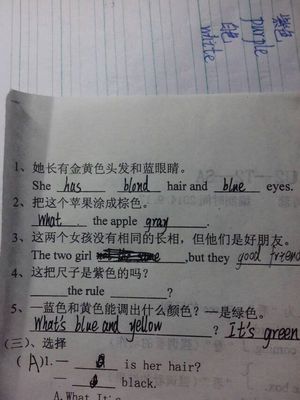 紫色
purple
白色
white
1、她长有金黄色头发和蓝眼睛。
She has blond hair and blue eyes.
2、把这个苹果涂成棕色。
What the apple gray.
3、这两个女孩没有相同的长相，但他们是好朋友。
The two girl ,but they good friend
4、这把尺子是紫色的吗？
the rule ?
5、一蓝色和黄色能调出什么颜色？一是绿色。
What's blue and yellow ? It's green
(三)、选择
(A)1.— is her hair?
— black.
A.What It's